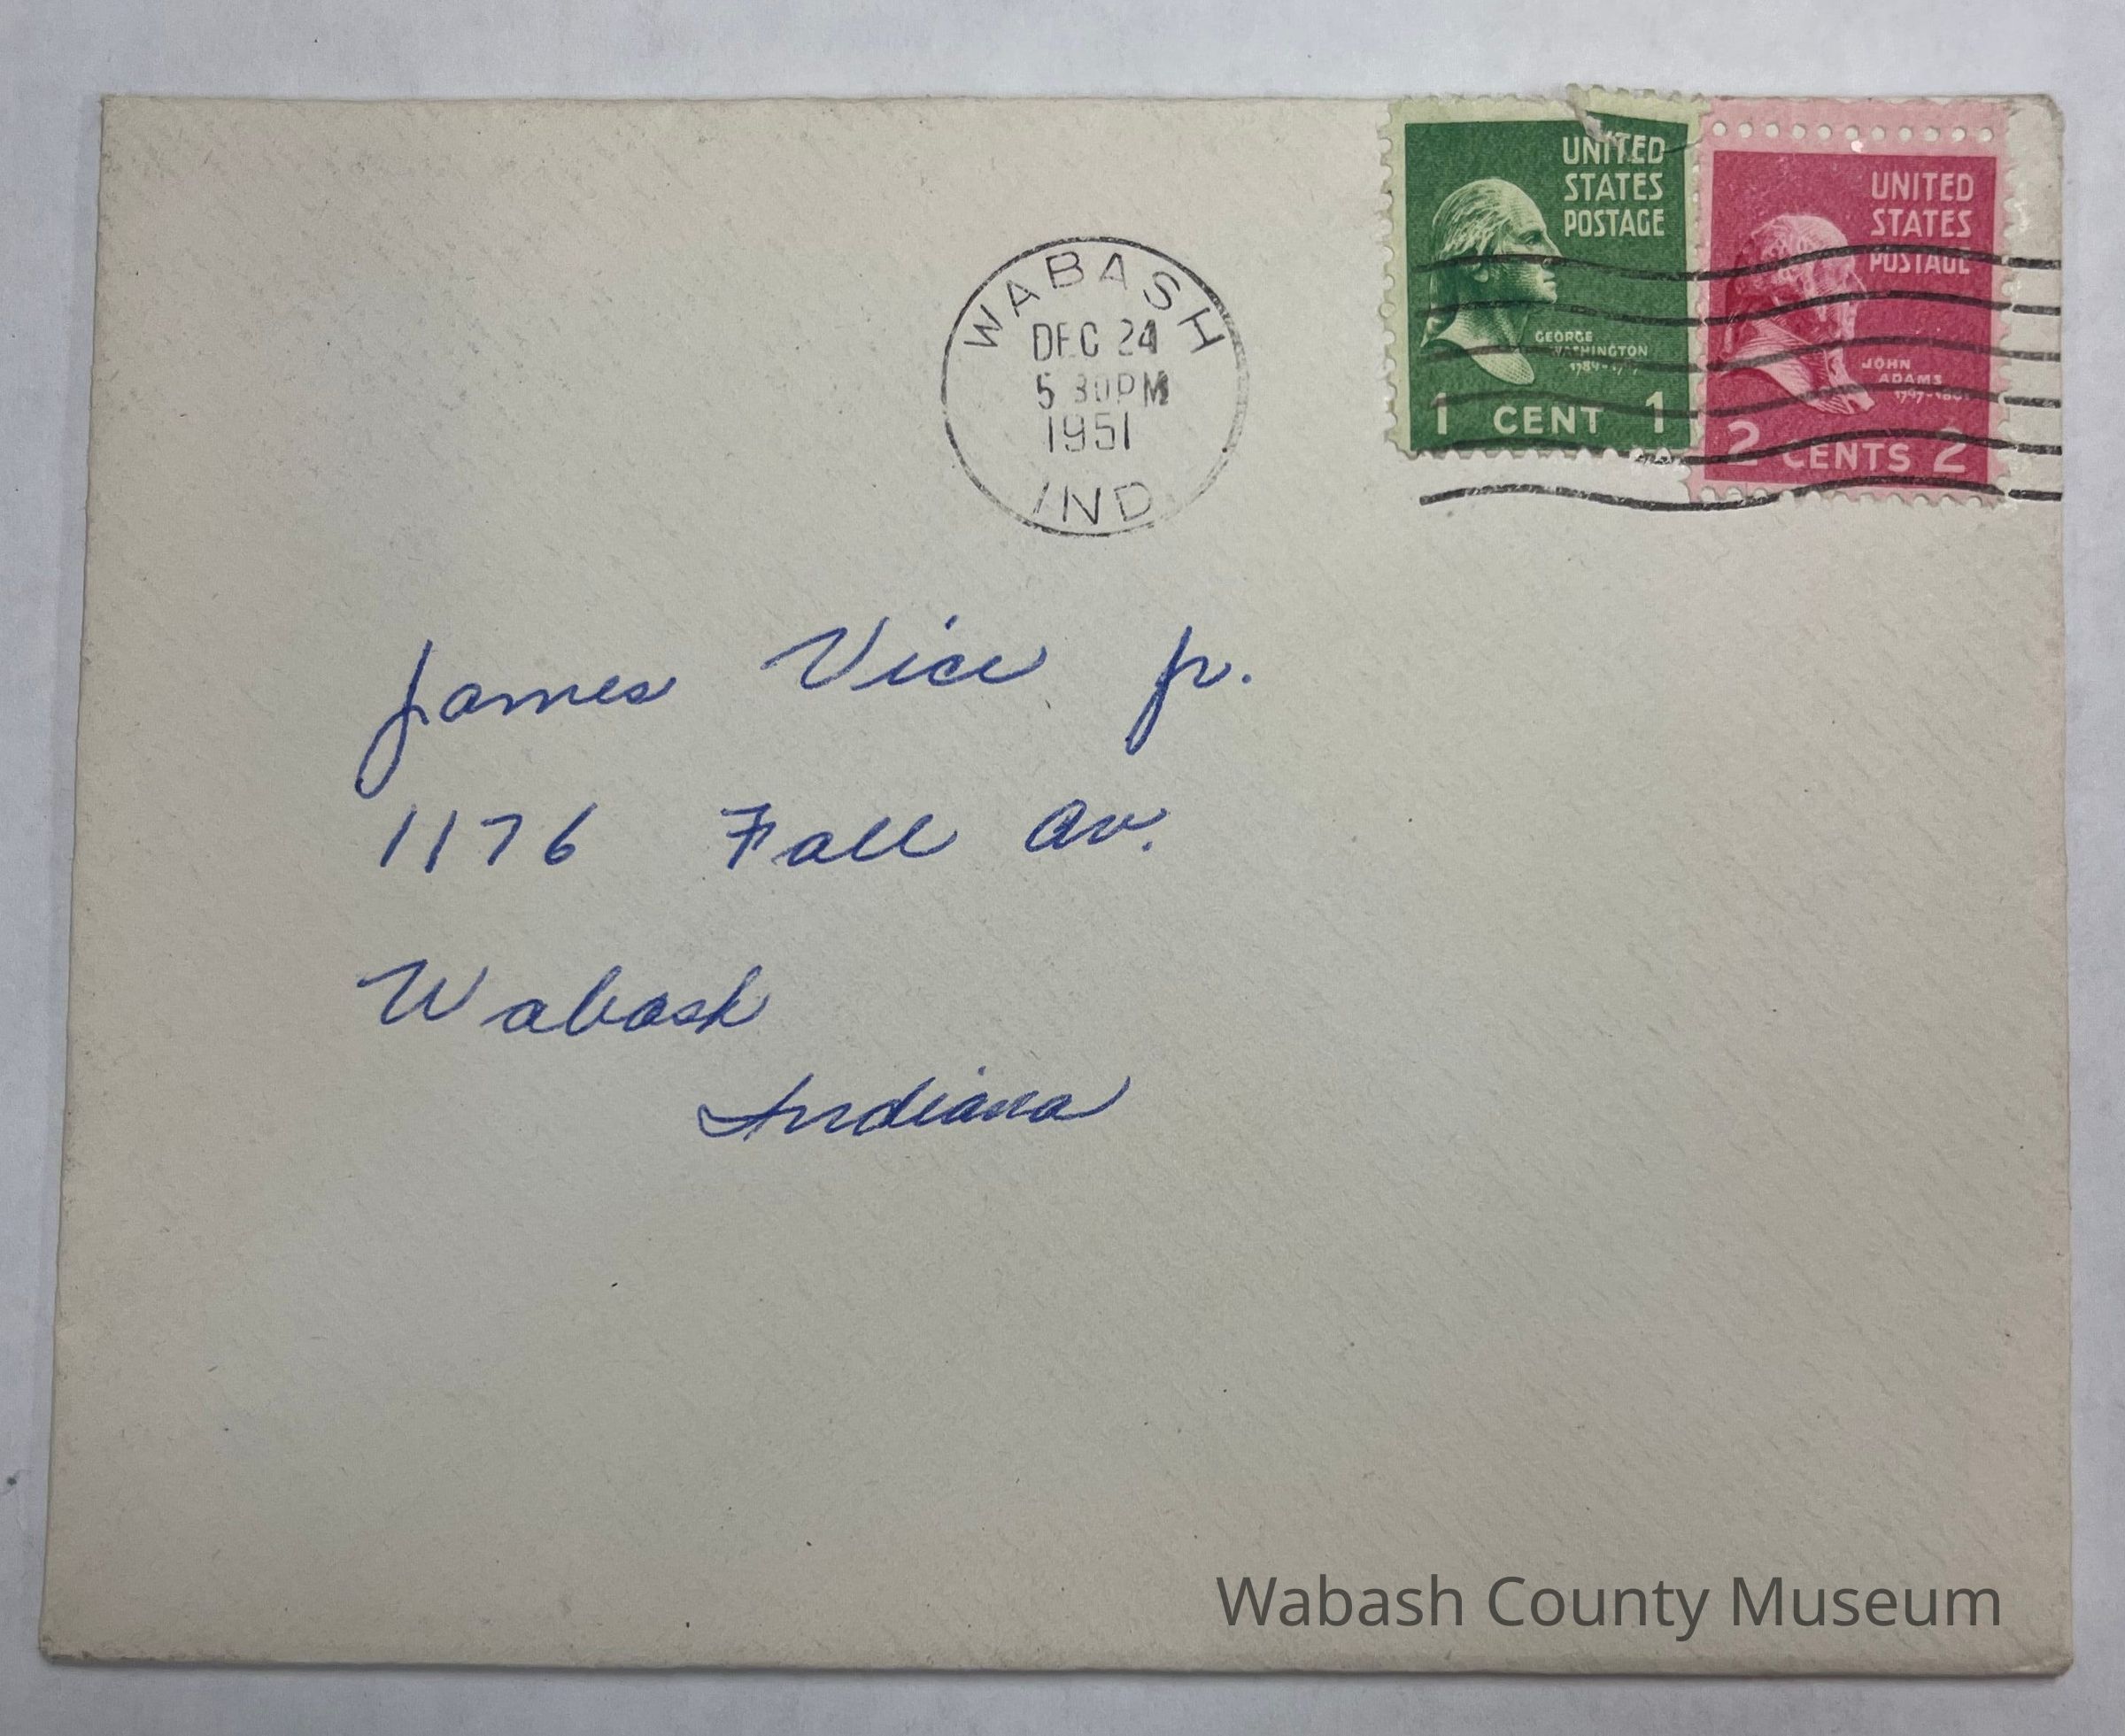 WABASH
DEC 24
5 30PM
1951
IND
UNITED
STATES
POSTAGE
GEORGE
WASHINGTON
1 CENT 1
UNITED
STATES
POSTAGE
JOHN
ADAMS
2 CENTS 2
James Vice Jr.
1176 Fall Av.
Wabash
Indiana
Wabash County Museum